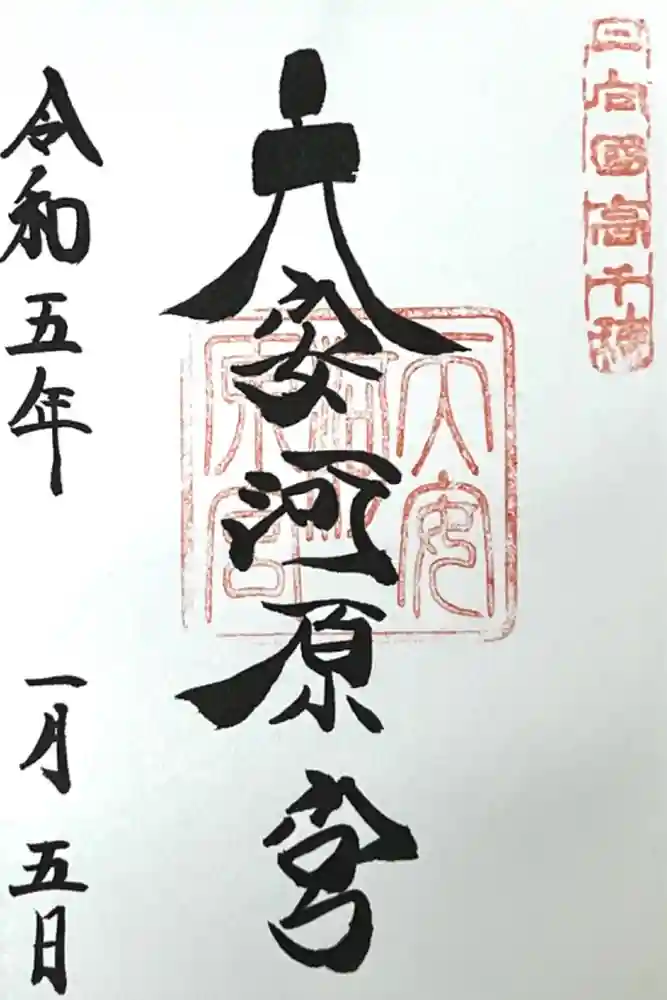 日向國高千穂
天安河原宮
天安河原宮
令和五年 一月五日